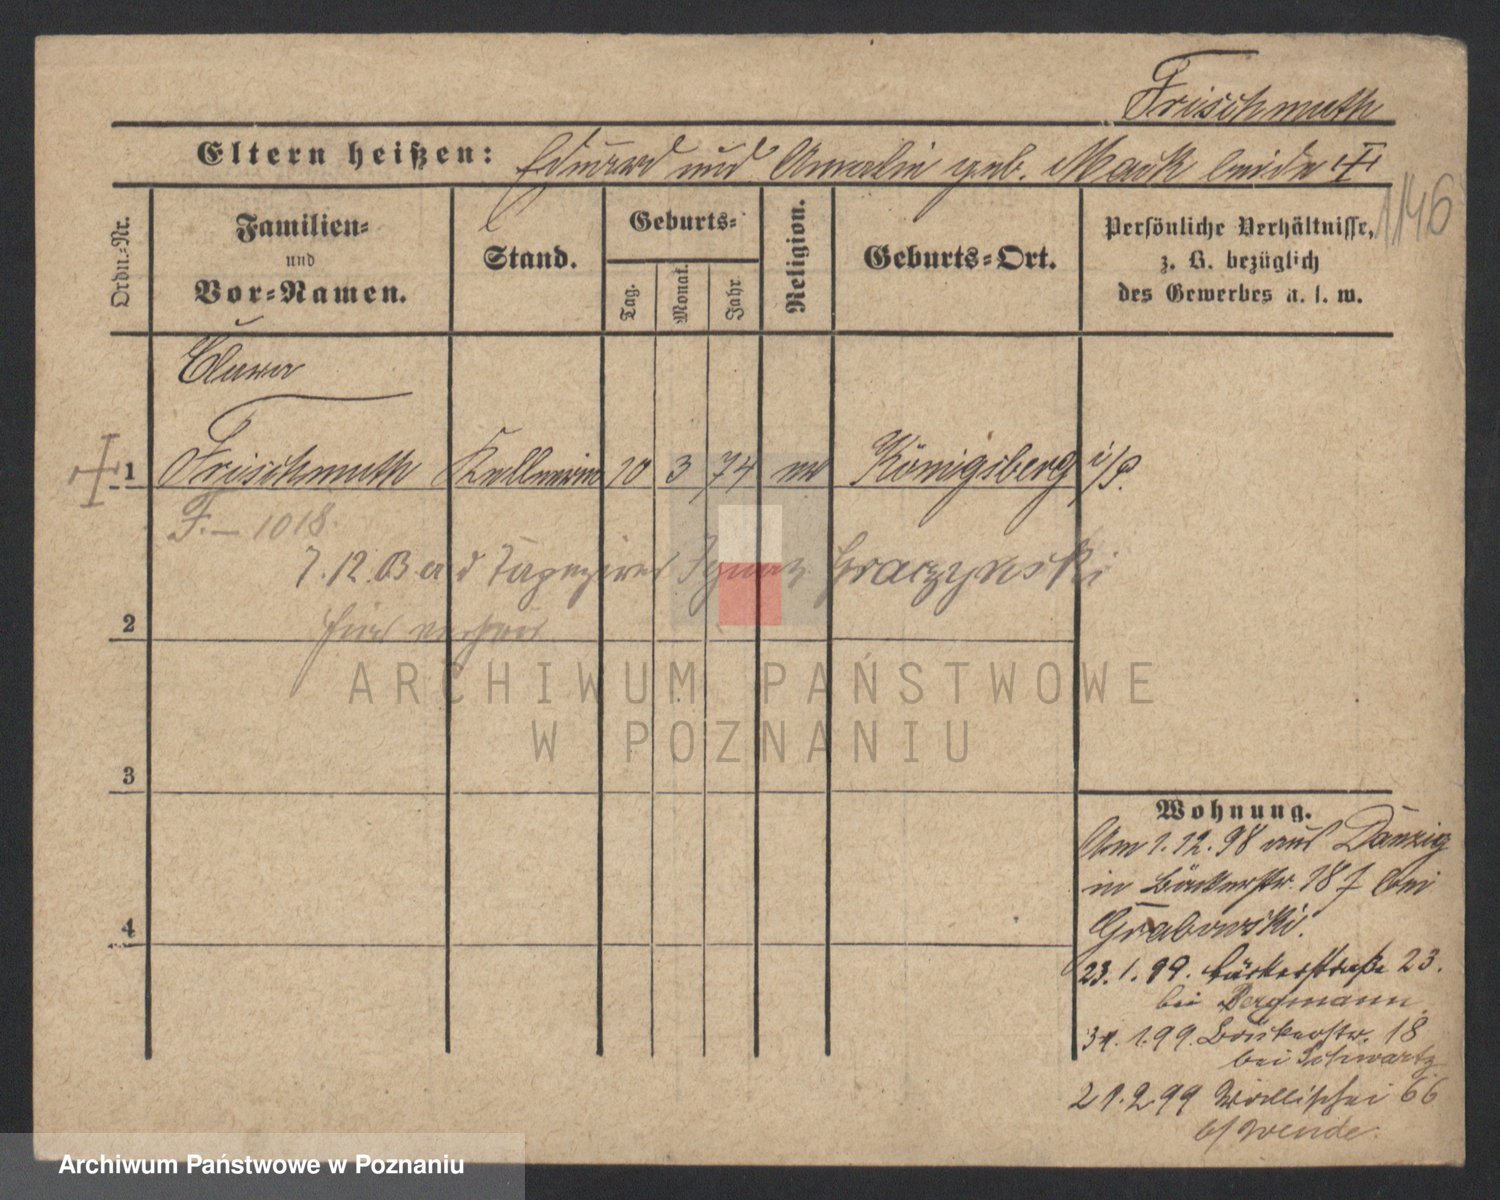 Frischmuth
Eltern heißen: Eduard und Amalie geb. Mack beide †
1146
Ordn.-Nr.
Familien-
und
Vor-Namen.
Stand.
Geburts-
Tag.
Monat.
Jahr.
Religion.
Geburts-Ort.
Persönliche Verhältnisse,
z. B. bezüglich
des Gewerbes u. s. w.
Clara
1 Frischmuth Kellnerin 10 3 74 ev Königsberg i/P.
F. — 1018.
7.12.B a d Tapezirer Ignaz Graczynski
2
ARCHIWUM PAŃSTWOWE
W POZNANIU
3
4
Wohnung.
Am 1.12.98 aus Danzig
in Bäckerstr. 18 bei
Grabowski.
23.1.99. Bäckerstraße 23.
bei Bergmann
31.1.99. Bäckerstr. 18
bei Schwartz
21.2.99 Wallischei 66
b/ Wende.
Archiwum Państwowe w Poznaniu